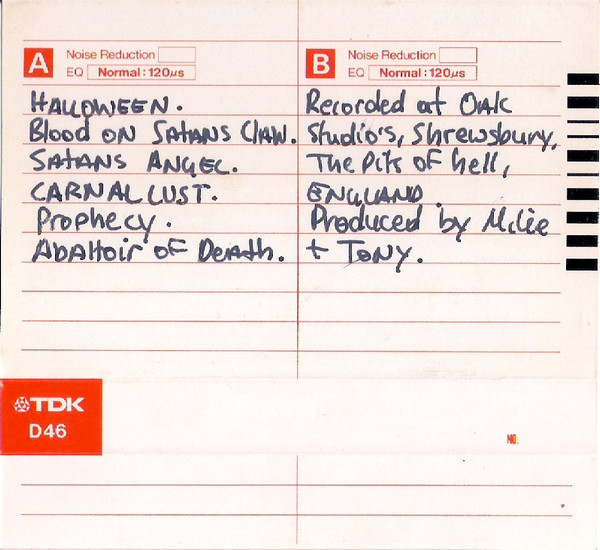 A
Noise Reduction
EQ Normal : 120μs
HALLOWEEN.
Blood on Satans Claw.
Satans Angel.
CARNAL LUST.
Prophecy.
Abattoir of Death.
B
Noise Reduction
EQ Normal : 120μs
Recorded at Oak
Studio's, Shrewsbury,
The Pits of hell,
ENGLAND.
Produced by
+ Tony.
TDK
D46
NO.